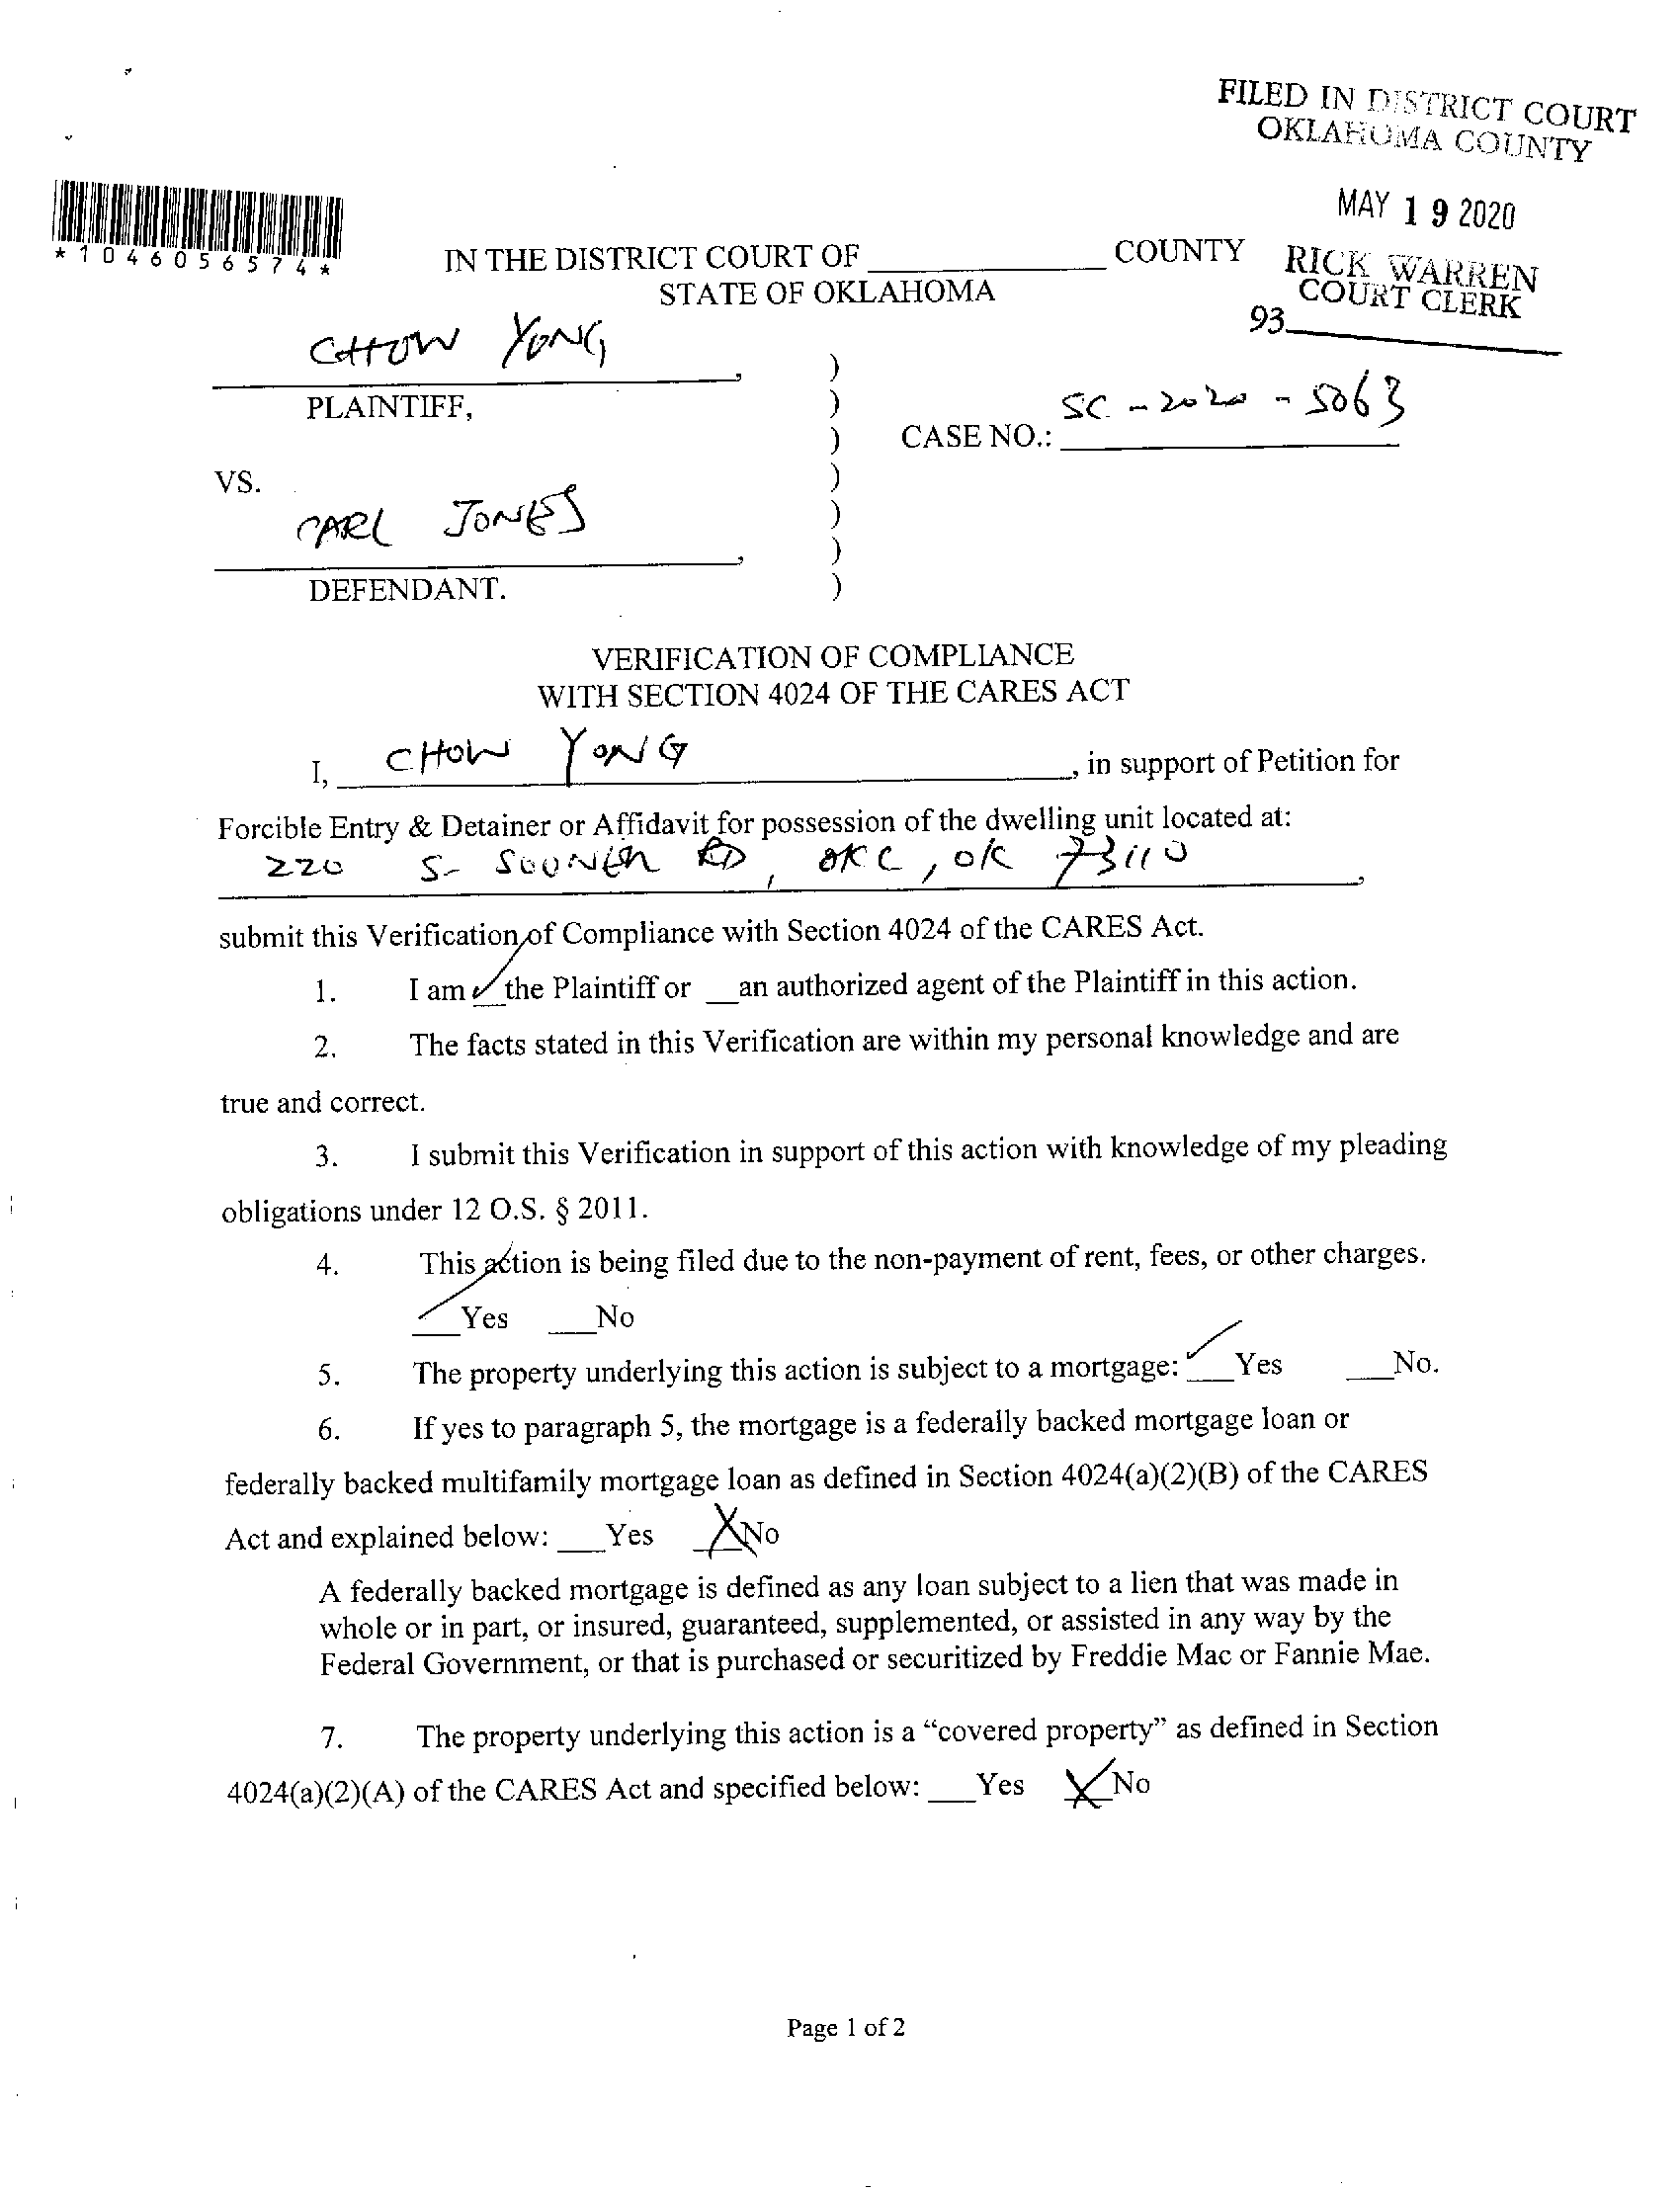 FILED IN DISTRICT COURT
OKLAHOMA COUNTY
MAY 19 2020
RICK WARREN
COURT CLERK
93
*1046056574*
IN THE DISTRICT COURT OF ____________ COUNTY
STATE OF OKLAHOMA
CHOW YONG,
PLAINTIFF,
SC-2020-5063
CASE NO.:
VS.
CARL JONES,
DEFENDANT.
)
)
)
)
)
)
)
VERIFICATION OF COMPLIANCE
WITH SECTION 4024 OF THE CARES ACT
I, CHOW YONG, in support of Petition for
Forcible Entry & Detainer or Affidavit for possession of the dwelling unit located at:
220 S- SOONER RD, OKC, OK 73110,
submit this Verification of Compliance with Section 4024 of the CARES Act.
1. I am ✓ the Plaintiff or __an authorized agent of the Plaintiff in this action.
2. The facts stated in this Verification are within my personal knowledge and are
true and correct.
3. I submit this Verification in support of this action with knowledge of my pleading
obligations under 12 O.S. § 2011.
4. This action is being filed due to the non-payment of rent, fees, or other charges.
✓Yes ___No
5. The property underlying this action is subject to a mortgage: ✓Yes ___No.
6. If yes to paragraph 5, the mortgage is a federally backed mortgage loan or
federally backed multifamily mortgage loan as defined in Section 4024(a)(2)(B) of the CARES
Act and explained below: ___Yes XNo
A federally backed mortgage is defined as any loan subject to a lien that was made in
whole or in part, or insured, guaranteed, supplemented, or assisted in any way by the
Federal Government, or that is purchased or securitized by Freddie Mac or Fannie Mae.
7. The property underlying this action is a “covered property” as defined in Section
4024(a)(2)(A) of the CARES Act and specified below: ___Yes XNo
Page 1 of 2